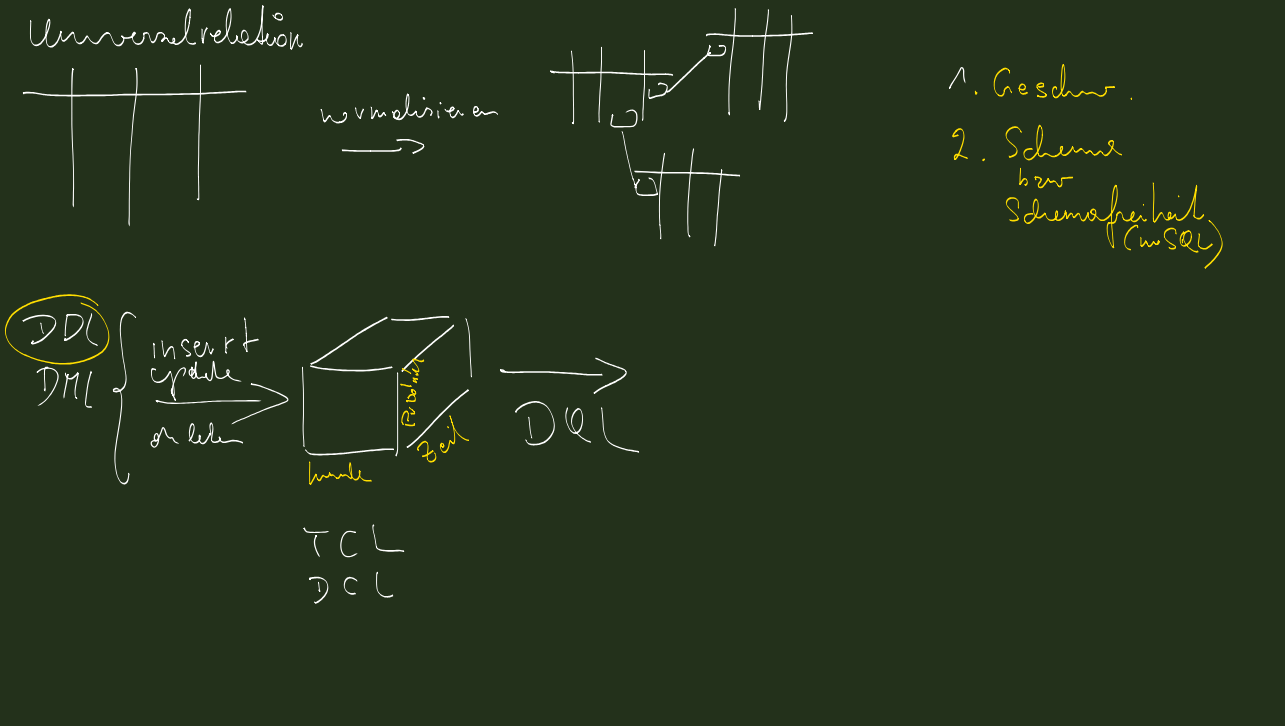 Universalrelation
normalisieren
1. Geschw.
2. Schema
bzw
Schemafreiheit
(noSQL)
DDL
DML
insert
update
Produkt
Zeit
DQL
TCL
DCL